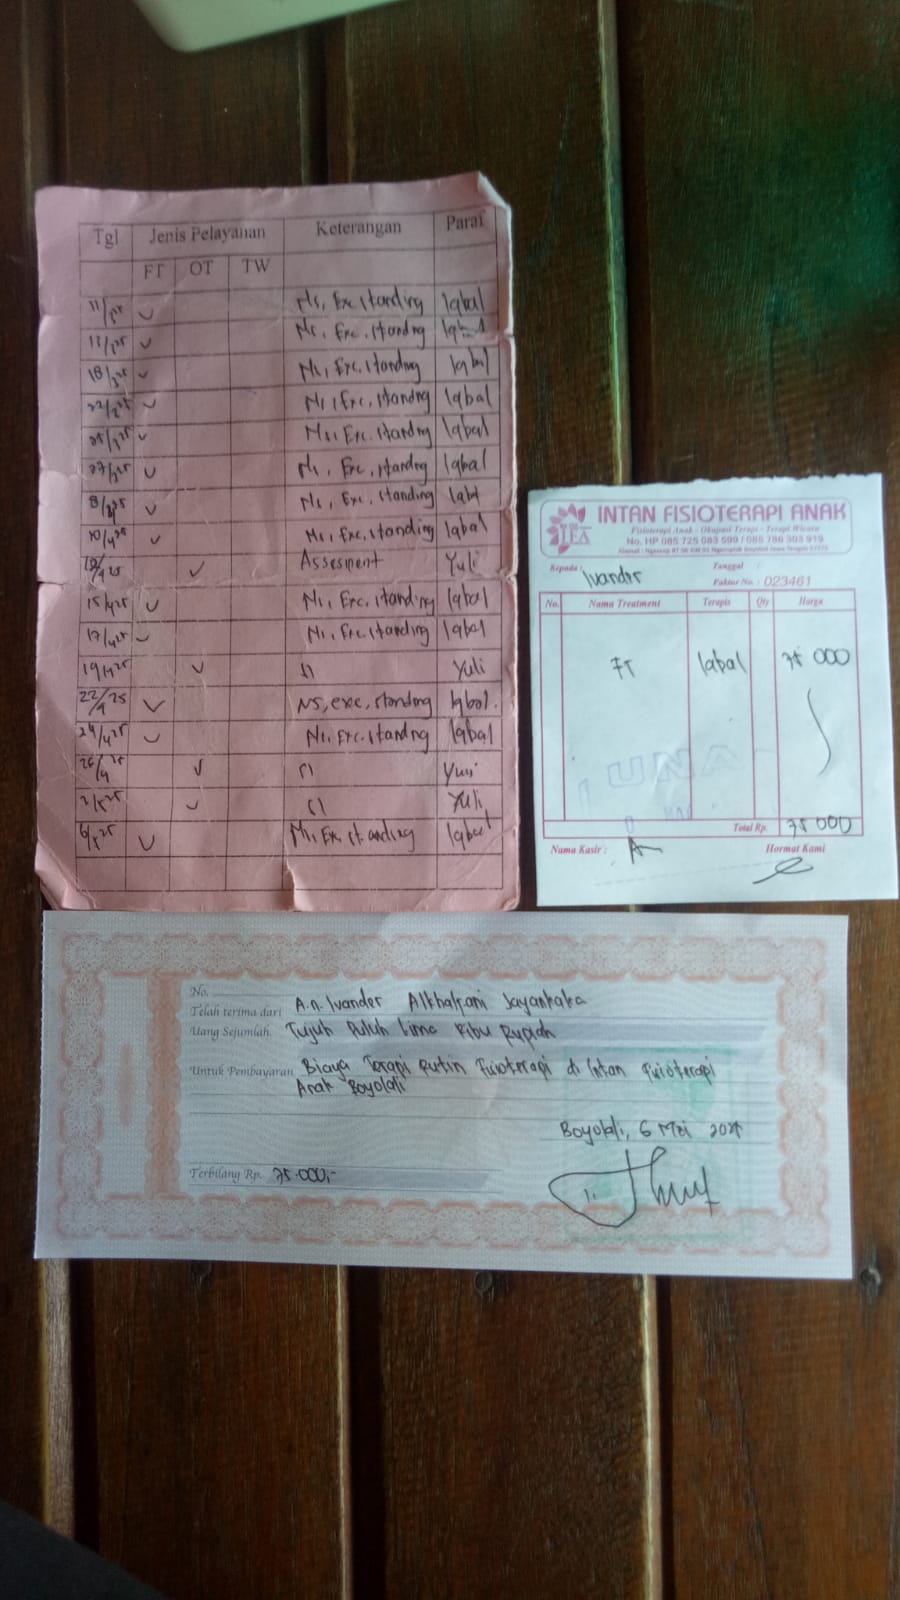 Tgl Jenis Pelayanan Keterangan Paraf
FT OT TW
11/3 25 Ns, Exc, standing Iqbal
13/3 25 Ns, Exc, standing Iqbal
18/3 25 Ns, Exc, standing Iqbal
22/3 25 Ns, Exc, standing Iqbal
25/3 25 Ns, Exc, standing Iqbal
27/3 25 Ns, Exc, standing Iqbal
8/ 25 Ns, Exc, standing
10/4 25 Ns, Exc, standing Iqbal
12/4 25 Assesment Yuli
15/4 25 Ns, Exc, standing Iqbal
17/4 25 Ns, Exc, standing Iqbal
19/4 25 SI Yuli
22/4 25 NS, exc, standing Iqbal.
24/4 25 Ns, Exc, standing Iqbal
26/4 25 SI Yuli
2/5 25 SI Yuli
6/5 25 Ns, Ex, standing Iqbal
INTAN FISIOTERAPI ANAK
IFA
Fisioterapi Anak - Okupasi Terapi - Terapi Wicara
No. HP 085 725 083 599 / 085 786 303 919
Kepada : Ivander
Tanggal :
Faktur No. : 023461
No. Nama Treatment Terapis Qty Harga
FT Iqbal 75 000
LUNAS
Total Rp. 75 000
Nama Kasir : Hormat Kami
No.
Telah terima dari A.n. Ivander Alkhalfani Jayantaka
Uang Sejumlah Tujuh Puluh Lima Ribu Rupiah
Untuk Pembayaran Biaya Terapi Rutin Fisioterapi di Intan Fisioterapi
Anak Boyolali
Boyolali, 6 Mei 2025
Terbilang Rp. 75.000,-